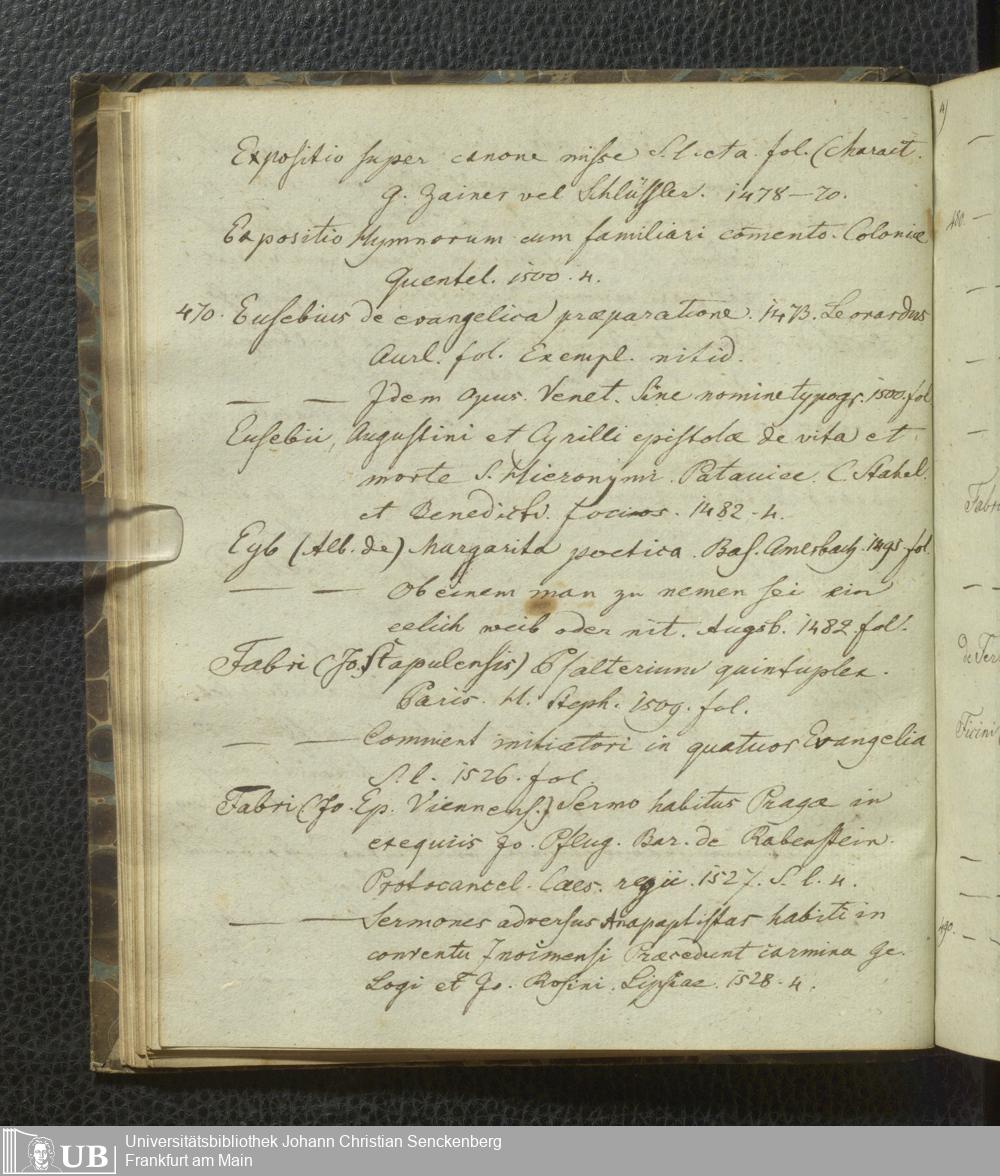 Expositio super canone misse S. l. et a. fol. (Charact.
G. Zainer vel Schlüssler. 1478–70.
Expositio Hymnorum cum familiari comento. Coloniæ
Quentel. 1500. 4.
470. Eusebius de evangelica præparatione. 1473. Leonardus
Aurl. fol. Exempl. nitid.
— — Idem opus. Venet. Sine nomine typogr. 1500. fol
Eusebii, Augustini et Cyrilli epistolæ de vita et
morte S. Hieronymi. Pataviæ. C. Stahel.
et Benedicti. socios. 1482. 4.
Eyb (Alb. de) Margarita poetica. Bas. Amerbach. 1495. fol.
— — Ob einem man zu nemen sei ein
eelich weib oder nit. Augsb. 1482. fol.
Fabri (Jo. Stapulensis) Psalterium quintuplex.
Paris. H. Steph. 1509. fol.
— — Comment initiatori in quatuor Evangelia
S. l. 1526. fol.
Fabri (Jo. Ep. Viennens.) Sermo habitus Pragæ in
exequiis Jo. Pflug. Bar. de Rabenstein.
Protocancel. Caes. regii. 1527. S. l. 4.
— — Sermones adversus Anapaptistas habiti in
conventu Znoimensi Præcedunt carmina Ge.
Logi et Jo. Rosini. Lipsiae. 1528. 4.
4)
480.
Fabri
de Fer
Ficini
490.
UB
Universitätsbibliothek Johann Christian Senckenberg
Frankfurt am Main